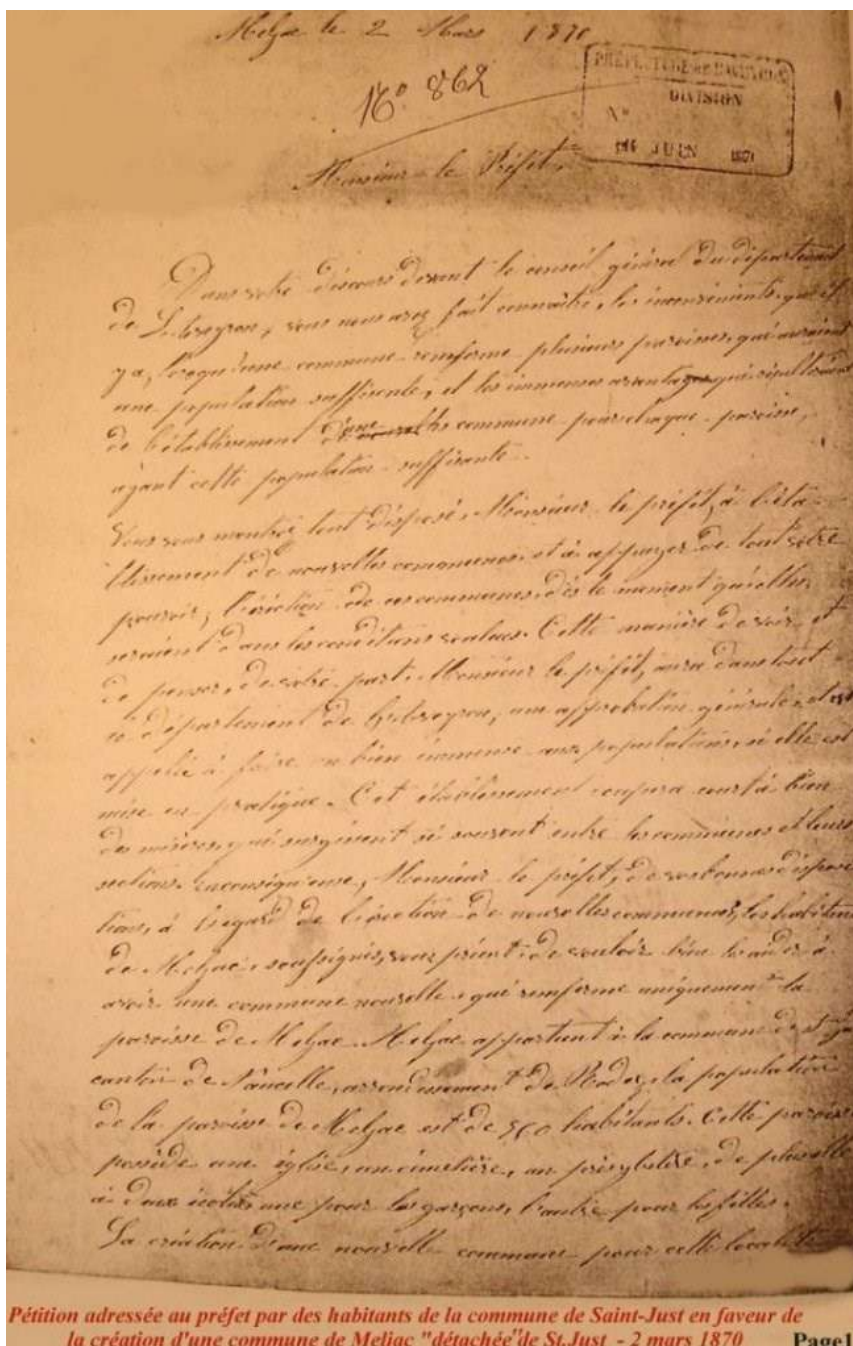 Meljac le 2 Mars 1870
N° 862
PRÉFECTURE DE L'AVEYRON
DIVISION
N°
JUIN 1870
Monsieur le Préfet,
Dans votre discours devant le conseil général du département
de L'Aveyron, vous nous avez fait connaître, les inconvénients, qu'il
y a, lorsqu'une commune renferme plusieurs paroisses, qui auraient
une population suffisante, et les immenses avantages qui résulteraient
de l'établissement d'une commune pour chaque paroisse,
ayant cette population suffisante.
Vous vous montrez tout disposé, Monsieur le préfet, à l'éta-
blissement de nouvelles communes, et à appuyer de tout votre
pouvoir, l'érection de ces communes, dès le moment qu'elles
seraient dans les conditions voulues. Cette manière de voir et
de penser, de votre part, Monsieur le préfet, aura dans tout
le département de L'Aveyron, une approbation générale, et est
appelée à faire un bien immense aux populations, si elle est
mise en pratique. Cet établissement coupera court à bien
des misères, qui surgissent si souvent entre les communes et leurs
sections. En conséquence, Monsieur le préfet, de vos bonnes disposi
tions, à l'égard de l'érection de nouvelles communes, les habitants
de Meljac, soussignés, vous prient, de vouloir bien les aider à
avoir une commune nouvelle, qui renferme uniquement la
paroisse de Meljac. Meljac appartient à la commune de St Just
canton de Naucelle, arrondissement de Rodez, la population
de la paroisse de Meljac est de 560 habitants. Cette paroisse
possède une église, un cimetière, un presbytère, de plus elle
a deux écoles, une pour les garçons, l'autre pour les filles.
La création d'une nouvelle commune pour cette localité
Pétition adressée au préfet par des habitants de la commune de Saint-Just en faveur de
la création d'une commune de Meljac "détachée"de St.Just - 2 mars 1870 Page1